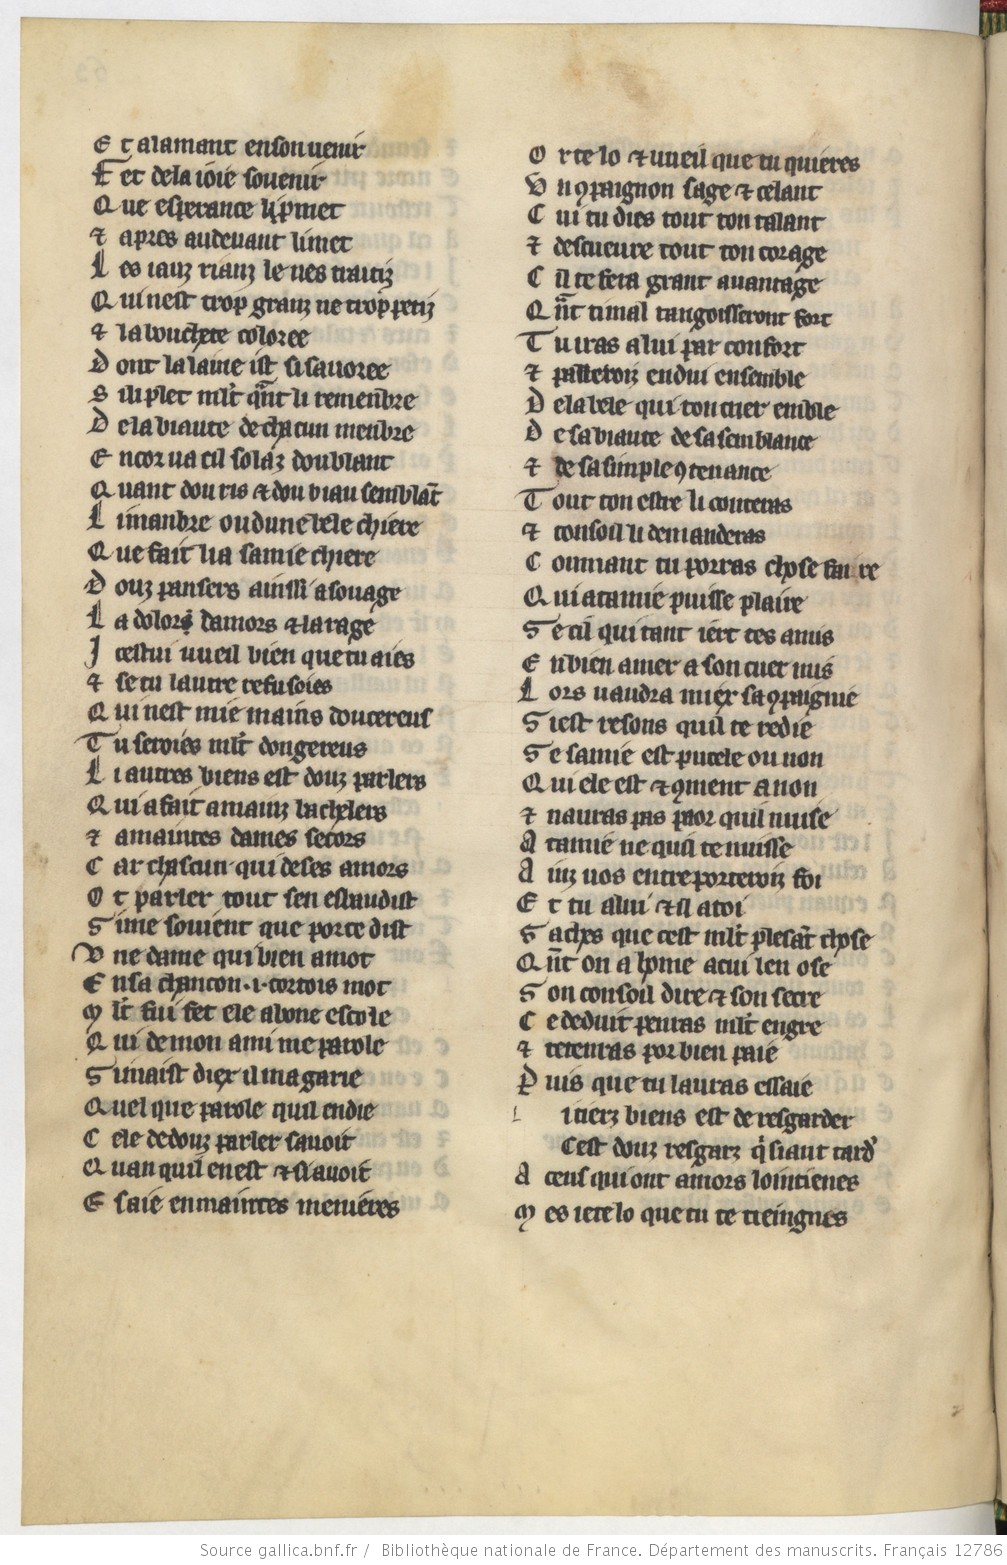 E t a lamant en son uenir
F et de la ioie souenir
Q ue esperance li ꝓmet
⁊ apres au deuant li met
L es iauz rianz le nes traitiz
Q ui nest trop granz ne trop petiz
⁊ la bouchete coloree
D ont la laine ist si sauoree
S i li plet mlt̃ qñt li remenbre
D e la biaute de chacun menbre
E ncor ua cil solaz doublant
Q uant dou ris ⁊ dou biau semblãt
L i manbre ou dune bele chiere
Q ue fait li a samie chiere
D ouz pansers ainssi asouage
L a dolor damors ⁊ la rage
I cestui uueil bien que tu aies
⁊ se tu lautre refusoies
Q ui nest mie mains doucereus
T u seroies mlt̃ dongereus
L i autres biens est douz parlers
Q ui a fait a mainz bachelers
⁊ a maintes dames secors
C ar chascun qui de ses amors
O t parler tout sen esbaudist
S i me souient que por ce dist
V ne dame qui bien amot
E n sa chancon .i. cortois mot
M lt̃ sui fet ele a bone escole
Q ui de mon ami me parole
S i maist diex il ma garie
Q uel que parole quil en die
C ele de douz parler sauoit
Q uan quil en est ⁊ si auoit
E saie en maintes menieres
O r te lo ⁊ uueil que tu quieres
V n ꝯpaignon sage ⁊ celant
C ui tu dies tout ton talant
⁊ descueure tout ton corage
C il te fera grant auantage
Q ñt ti mal tangoisseront fort
T u iras a lui par confort
⁊ palleroiz en dui ensemble
D e la bele qui ton cuer emble
D e sa biaute de sa semblance
⁊ de sa simple ꝯtenance
T out ton estre li conteras
⁊ consoil li demanderas
C onmant tu porras chose faire
Q ui a ta mie puisse plaire
S e cil qui tant iert tes amis
E n bien amer a son cuer mis
L ors uaudra miex sa ꝯpaignie
S i est resons quil te redie
S e samie est pucele ou non
Q ui ele est ⁊ ꝯment a non
⁊ nauras pas paor quil muse
A tamie ne quil te nuisse
A inz uos entreporteroiz foi
E t tu a lui ⁊ il a toi
S aches que cest mlt̃ plesãt chose
Q ñt on a home a cui len ose
S on consoil dire ⁊ son secre
C e deduit penras mlt̃ en gre
⁊ te tenras por bien paie
P uis que tu lauras essaie
L i tierz biens est de resgarder
Cest douz resgarz q̃ siaut tard̾
A ceus qui ont amors lointienes
M es ie te lo que tu te tieingnes
Source gallica.bnf.fr / Bibliothèque nationale de France. Département des manuscrits. Français 12786